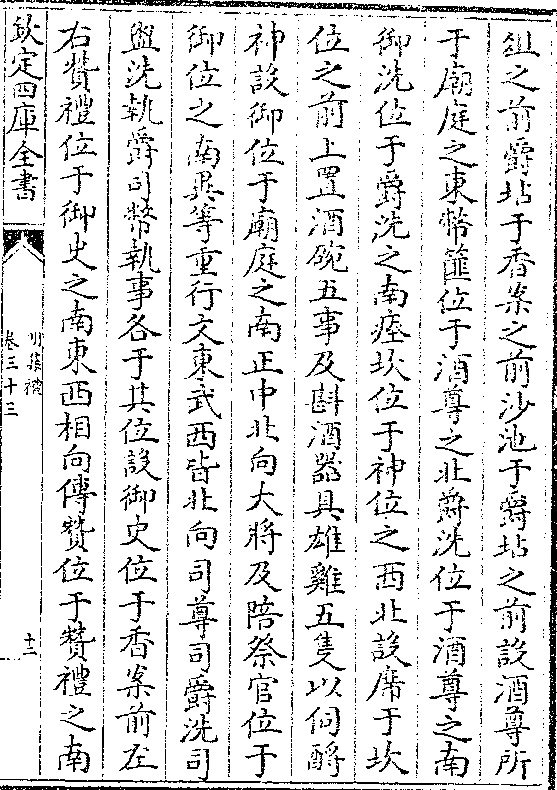 俎之前爵坫于香案之前沙池于爵坫之前設酒尊所
于廟庭之東幣篚位于酒尊之北爵洗位于酒尊之南
御洗位于爵洗之南瘞坎位于神位之西北設席于坎
位之前上置酒碗五事及斟酒器具雄雞五隻以伺酹
神設御位于廟庭之南正中北向大將及陪祭官位于
御位之南異等重行文東武西皆北向司尊司爵洗司
盥洗執爵司幣執事各于其位設御史位于香案前左
右贊禮位于御史之南東西相向傳贊位于贊禮之南
欽定四庫全書
明集禮
卷三十三
十二